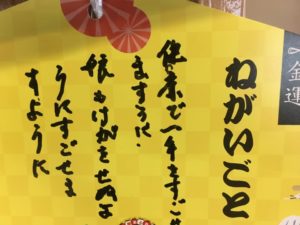 金運
ねがいごと
健康で一年すごせ
ますように、
娘もけがをせぬよ
うにすごせま
すように